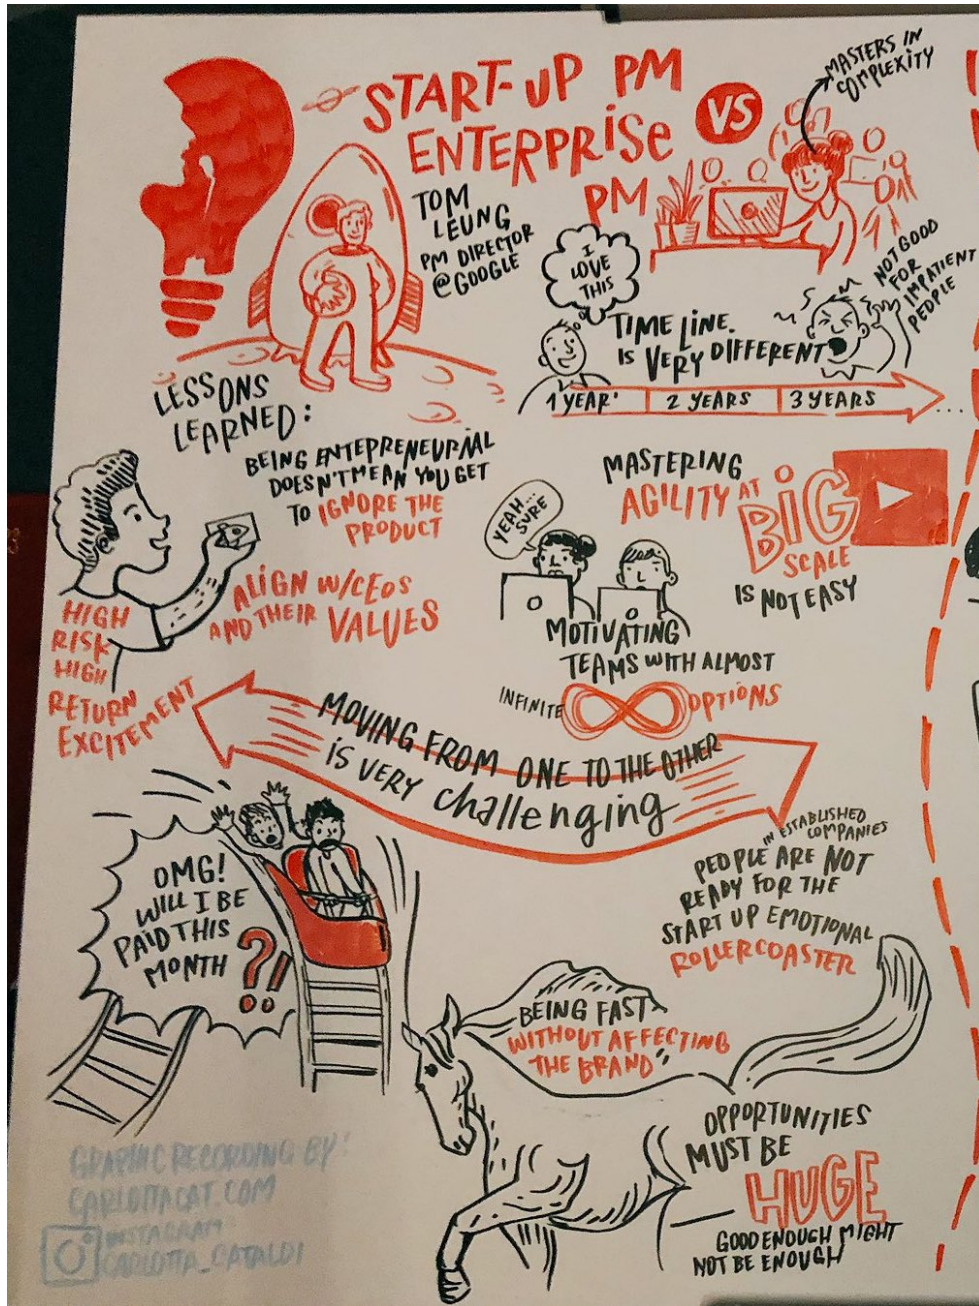 START-UP PM
VS
ENTERPRISE
PM
MASTERS IN
COMPLEXITY
TOM
LEUNG
PM DIRECTOR
@GOOGLE
I
LOVE
THIS
NOT GOOD
FOR
IMPATIENT
PEOPLE
TIME LINE.
IS VERY DIFFERENT
1 YEAR'
2 YEARS
3 YEARS
...
LESSONS
LEARNED:
BEING ENTEPRENEURIAL
DOESN'T MEAN YOU GET
TO IGNORE THE
PRODUCT
ALIGN W/CEOs
AND THEIR VALUES
HIGH
RISK
HIGH
RETURN
EXCITEMENT
MASTERING
AGILITY AT
BIG
SCALE
IS NOT EASY
YEAH...
SURE
MOTIVATING
TEAMS WITH ALMOST
INFINITE
OPTIONS
MOVING FROM ONE TO THE OTHER
IS VERY challenging
OMG!
WILL I BE
PAID THIS
MONTH
?!
IN ESTABLISHED
COMPANIES
PEOPLE ARE NOT
READY FOR THE
START UP EMOTIONAL
ROLLERCOASTER
BEING FAST
WITHOUT AFFECTING
THE BRAND"
OPPORTUNITIES
MUST BE
HUGE
GOOD ENOUGH MIGHT
NOT BE ENOUGH
GRAPHIC RECORDING BY:
CARLOTTACAT.COM
INSTAGRAM
CARLOTTA_CATALDI